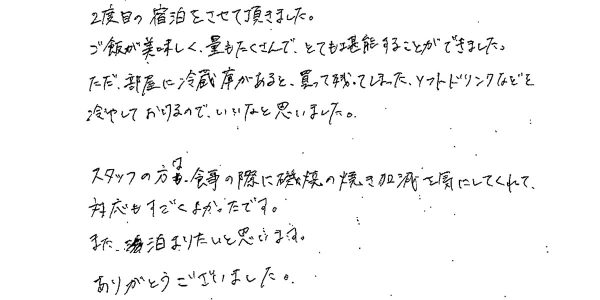 2度目の宿泊をさせて頂きました。
ご飯が美味しく、量もたくさんで、とても堪能することができました。
ただ、部屋に冷蔵庫があると、買って残ってしまった、ソフトドリンクなどを
冷やしておけるので、いいなと思いました。
スタッフの方も、食事の際に磯焼の焼き加減を気にしてくれて、
対応もすごくよかったです。
また、泊まりたいと思います。
ありがとうございました。